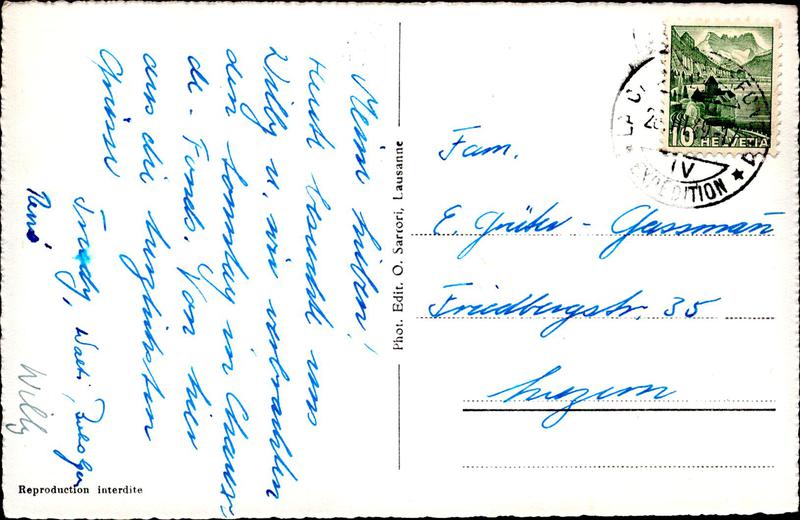 Meine lieben!
Heute besucht uns
Willy u. wir verbrachten
den Sonntag in Chaux-
de-Fonds. Von hier
aus die herzlichsten
Grüsse
Trudy, Walti,
René
Willy
Phot. Edit. O. Sartori, Lausanne
Reproduction interdite
Fam.
E. - Gassmann
Friedbergstr. 35
Luzern
10 HELVETIA
LA CH FON
IV
EXPEDITION